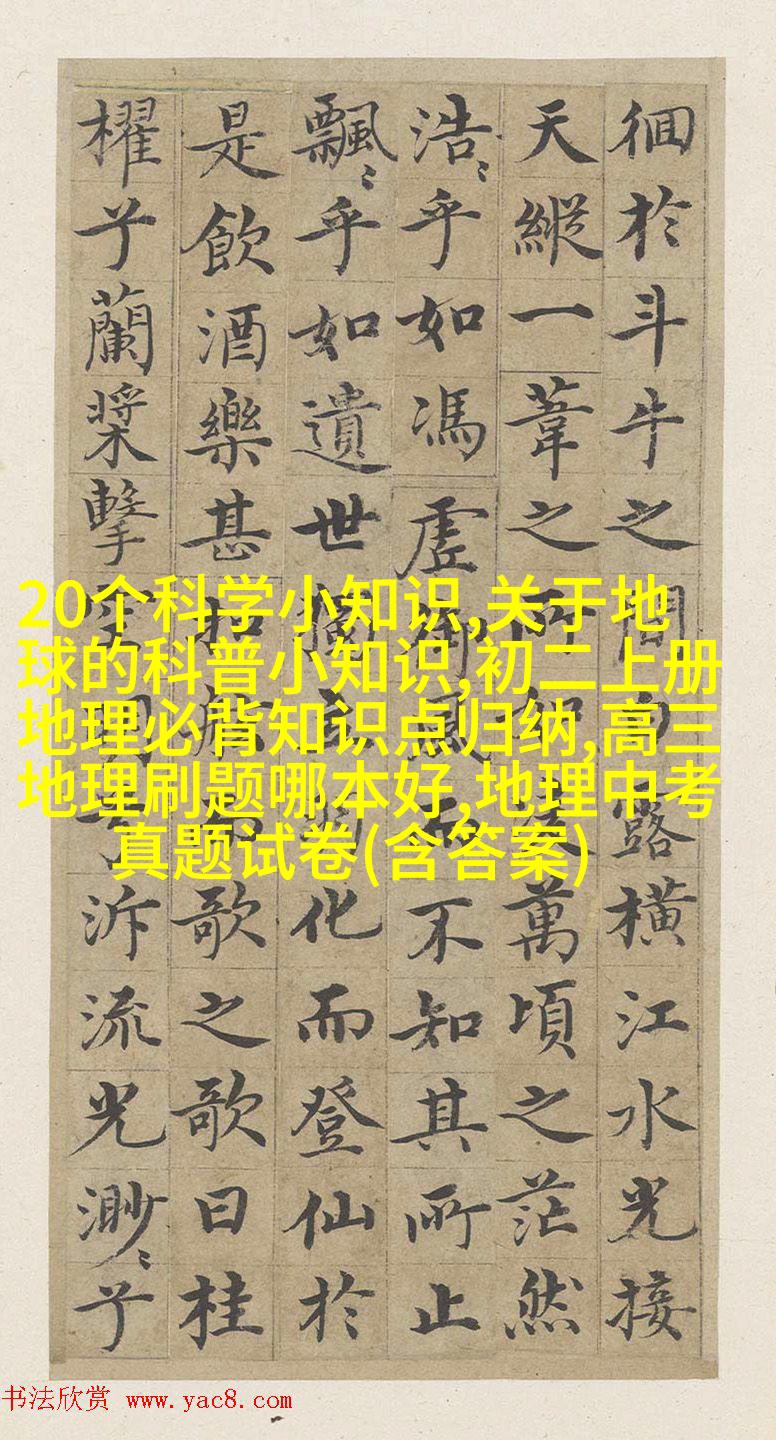 徊於斗牛之間白露橫江水光接
天縱一葦之所如凌萬頃之茫然
浩〻乎如馮虛御風而不知其所止
飄〻乎如遺世獨立羽化而登仙於
是飲酒樂甚扣舷而歌之歌曰桂
櫂兮蘭槳擊空明兮泝流光渺〻兮
20个科学小知识,关于地
球的科普小知识,初二上册
地理必背知识点归纳,高三
地理刷题哪本好,地理中考
真题试卷(含答案)
书法欣赏 www.yac8.com